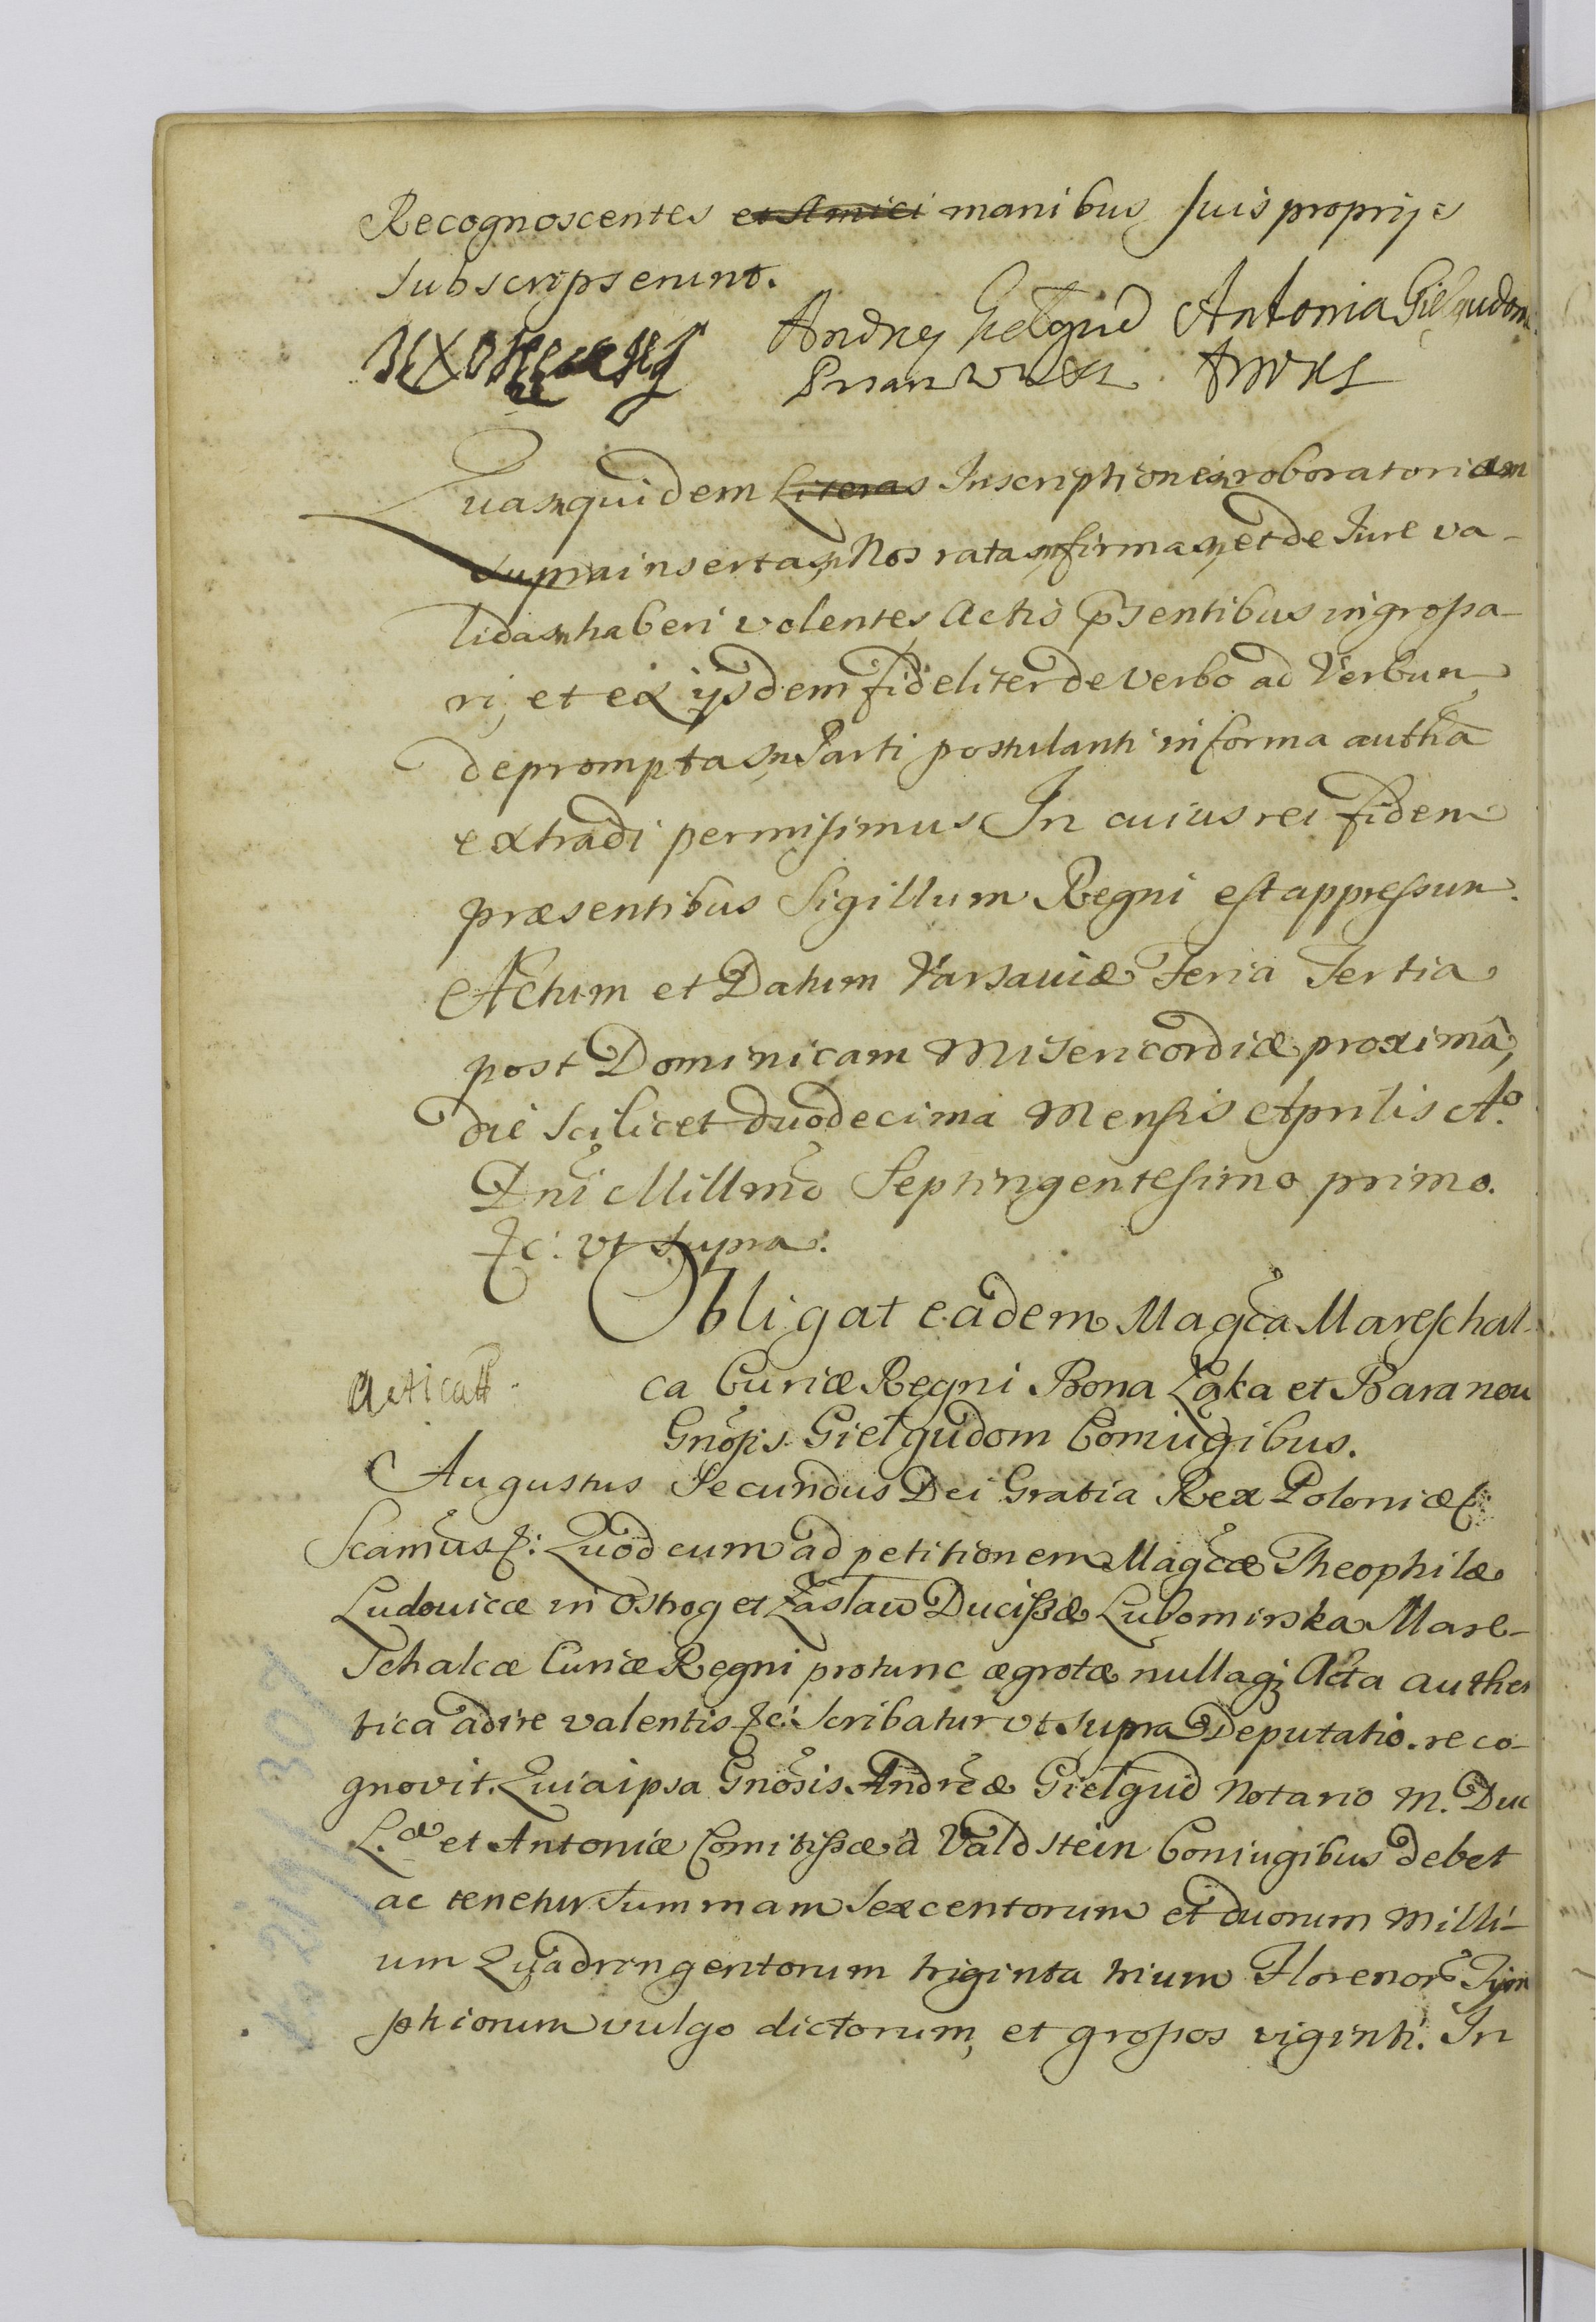 Recognoscentes et Amici manibus suis proprijs
subscripserunt.
Andrzey Giełgud Antonia Giełgudowa
Quam quidem Literas Inscriptionem roboratoriam
supra insertam Nos ratam firmam et de Iure va-
lidam haberi volentes Actis pñsentibus ingrossa-
ri, et ex ijsdem fideliter de verbo ad Verbum
depromptam Parti postulanti in forma autha
extradi permisimus In cuius rei fidem
præsentibus Sigillum Regni est appressum.
Actum et Datum Varsaviæ Feria Tertia
post Dominicam Misericordiæ proximâ,
die scilicet duodecima Mensis Aprilis Aº
Dni Millmo Septingentesimo primo.
&c: vt supra.
Obligat eadem Magca Mareschal-
ca Curiæ Regni Bona Łąka et Baranow
Gnosis Giełgudom Coniugibus.
Acticatt
Augustus Secundus Dei Gratia Rex Poloniæ &:
Scamus &: Quod cum ad petitionem Magcæ Theophilæ
Ludovicæ in Ostrog et Zasław Ducissæ Lubomirska Mare-
schalcæ Curiæ Regni protunc ægrotæ nullaq; Acta authen
tica adire valentis &c: Scribatur vt supra Deputatio. reco-
gnovit. Quia ipsa Gnosis Andreæ Giełgud Notario M. Duc
L.æ et Antoniæ Comitissæ à Valdstein Coniugibus debet
ac tenetur summam sexcentorum et duorum Milli-
um Quadringentorum triginta trium Florenor Tym
phionum vulgo dictorum, et grossos viginti. In